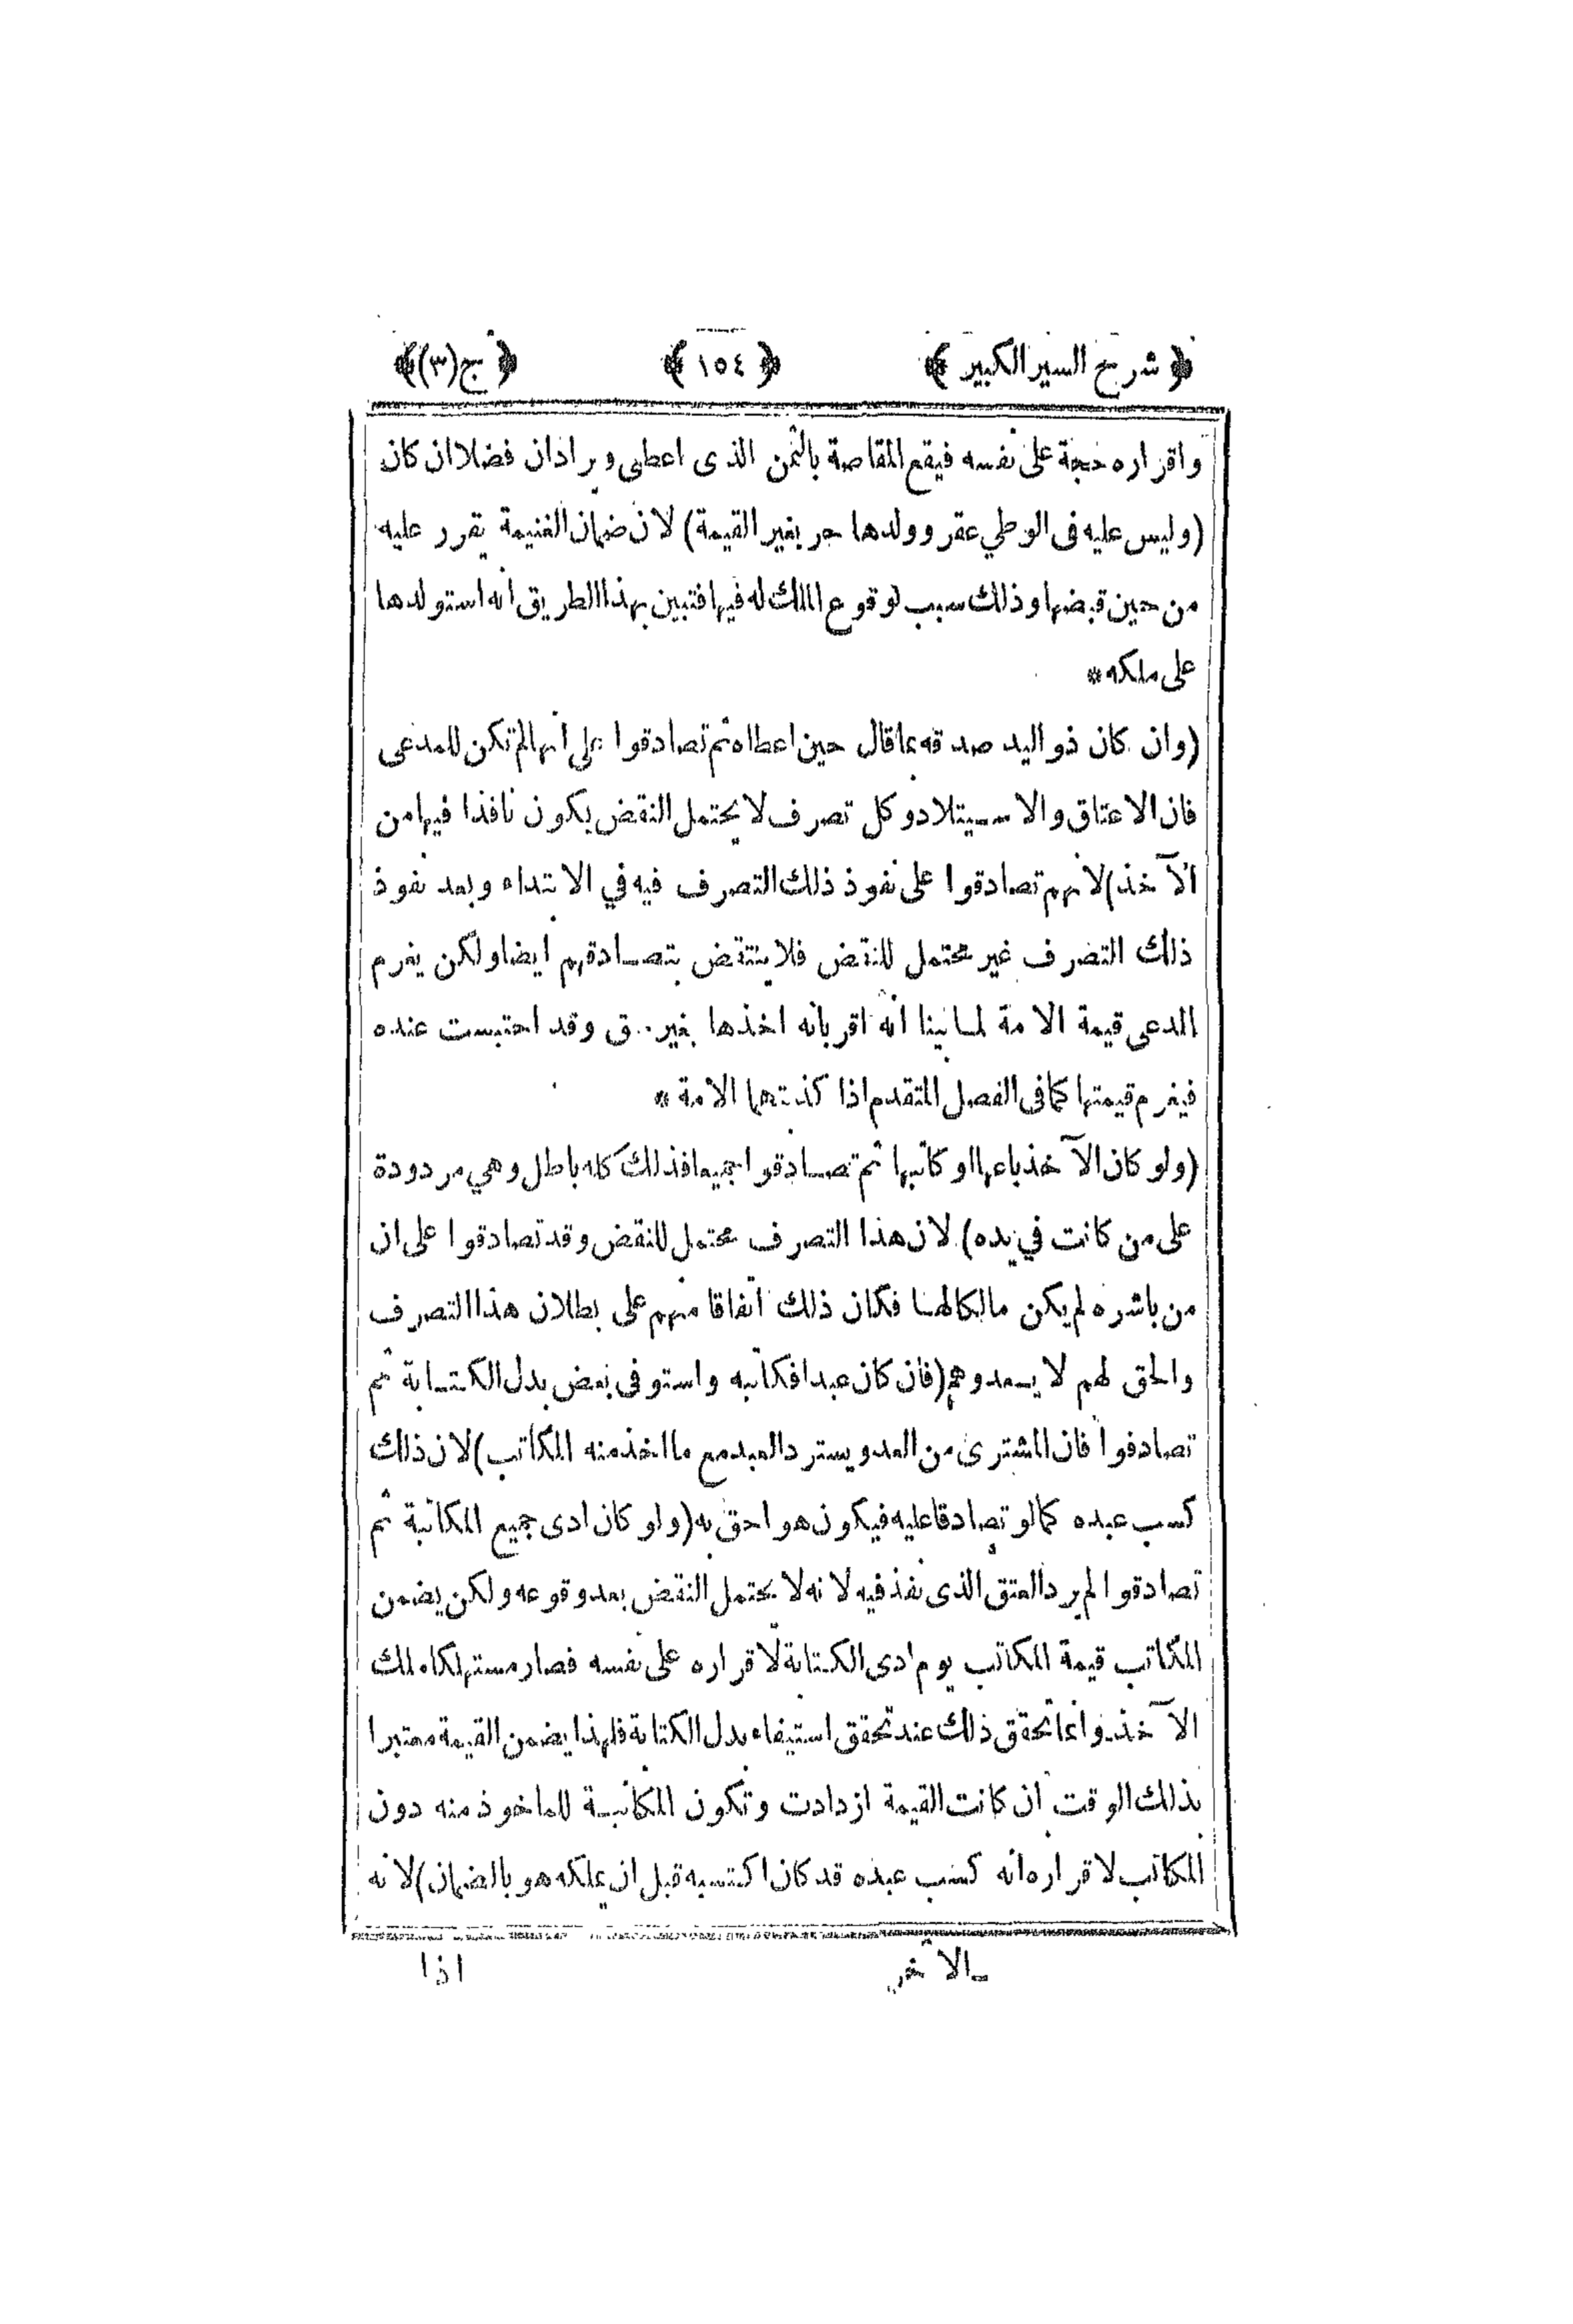 ﴿ شرح السير الكبير ﴾ ﴿ ١٥٤ ﴾ ﴿ ج (٣) ﴾
واقراره حجة على نفسه فيقع المقاصة بالثمن الذى اعطى ويرادان فضلا ان كان
(وليس عليه فى الوطي عقر وولدها حر بغير القيمة) لان ضمان الغنيمة يقرر عليه
من حين قبضها وذلك سبب لوقوع الملك له فيها فتبين بهذا الطريق انه استولدها
على ملكه *
(وان كان ذو اليد صدقه بما قال حين اعطاه ثم تصادقوا على انها لم تكن للمدعى
فان الاعتاق والاستيلاد وكل تصرف لا يحتمل النقض يكون نافذا فيها من
الآخذ) لانهم تصادقوا على نفوذ ذلك التصرف فيه في الابتداء وبعد نفوذ
ذلك التصرف غير محتمل للنقض فلا ينتقض بتصادقهم ايضا ولكن يغرم
المدعى قيمة الامة لما بينا انه اقر بانه اخذها بغير وقد احتبست عنده
فيغرم قيمتها كما فى الفصل المتقدم اذا كذبتهما الامة *
(ولو كان الآخذ باعها او كاتبها ثم تصادقوا جميعا فذلك كله باطل وهي مردودة
على من كانت في يده) لان هذا التصرف محتمل للنقض وقد تصادقوا على ان
من باشره لم يكن مالكا لها فكان ذلك اتفاقا منهم على بطلان هذا التصرف
والحق لهم لا يعدوهم (فان كان عبدا فكاتبه واستوفى بعض بدل الكتابة ثم
تصادقوا فان المشترى من العدو يسترد العبد مع ما اخذ منه المكاتب) لان ذلك
كسب عبده كما لو تصادقا عليه فيكون هو احق به (ولو كان ادى جميع المكاتبة ثم
تصادقوا لم يرد العتق الذى نفذ فيه لانه لا يحتمل النقض بعد وقوعه ولكن يضمن
المكاتب قيمة المكاتب يوم ادى الكتابة لاقراره على نفسه فصار مستهلكا ملك
الآخذ وانما تحقق ذلك عند تحقق استيفاء بدل الكتابة فلهذا يضمن القيمة معتبرا
بذلك الوقت ان كانت القيمة ازدادت وتكون المكاتبة للماخوذ منه دون
المكاتب لاقراره انه كسب عبده قد كان اكتسبه قبل ان يملكه هو بالضمان) لانه
الآخر اذا